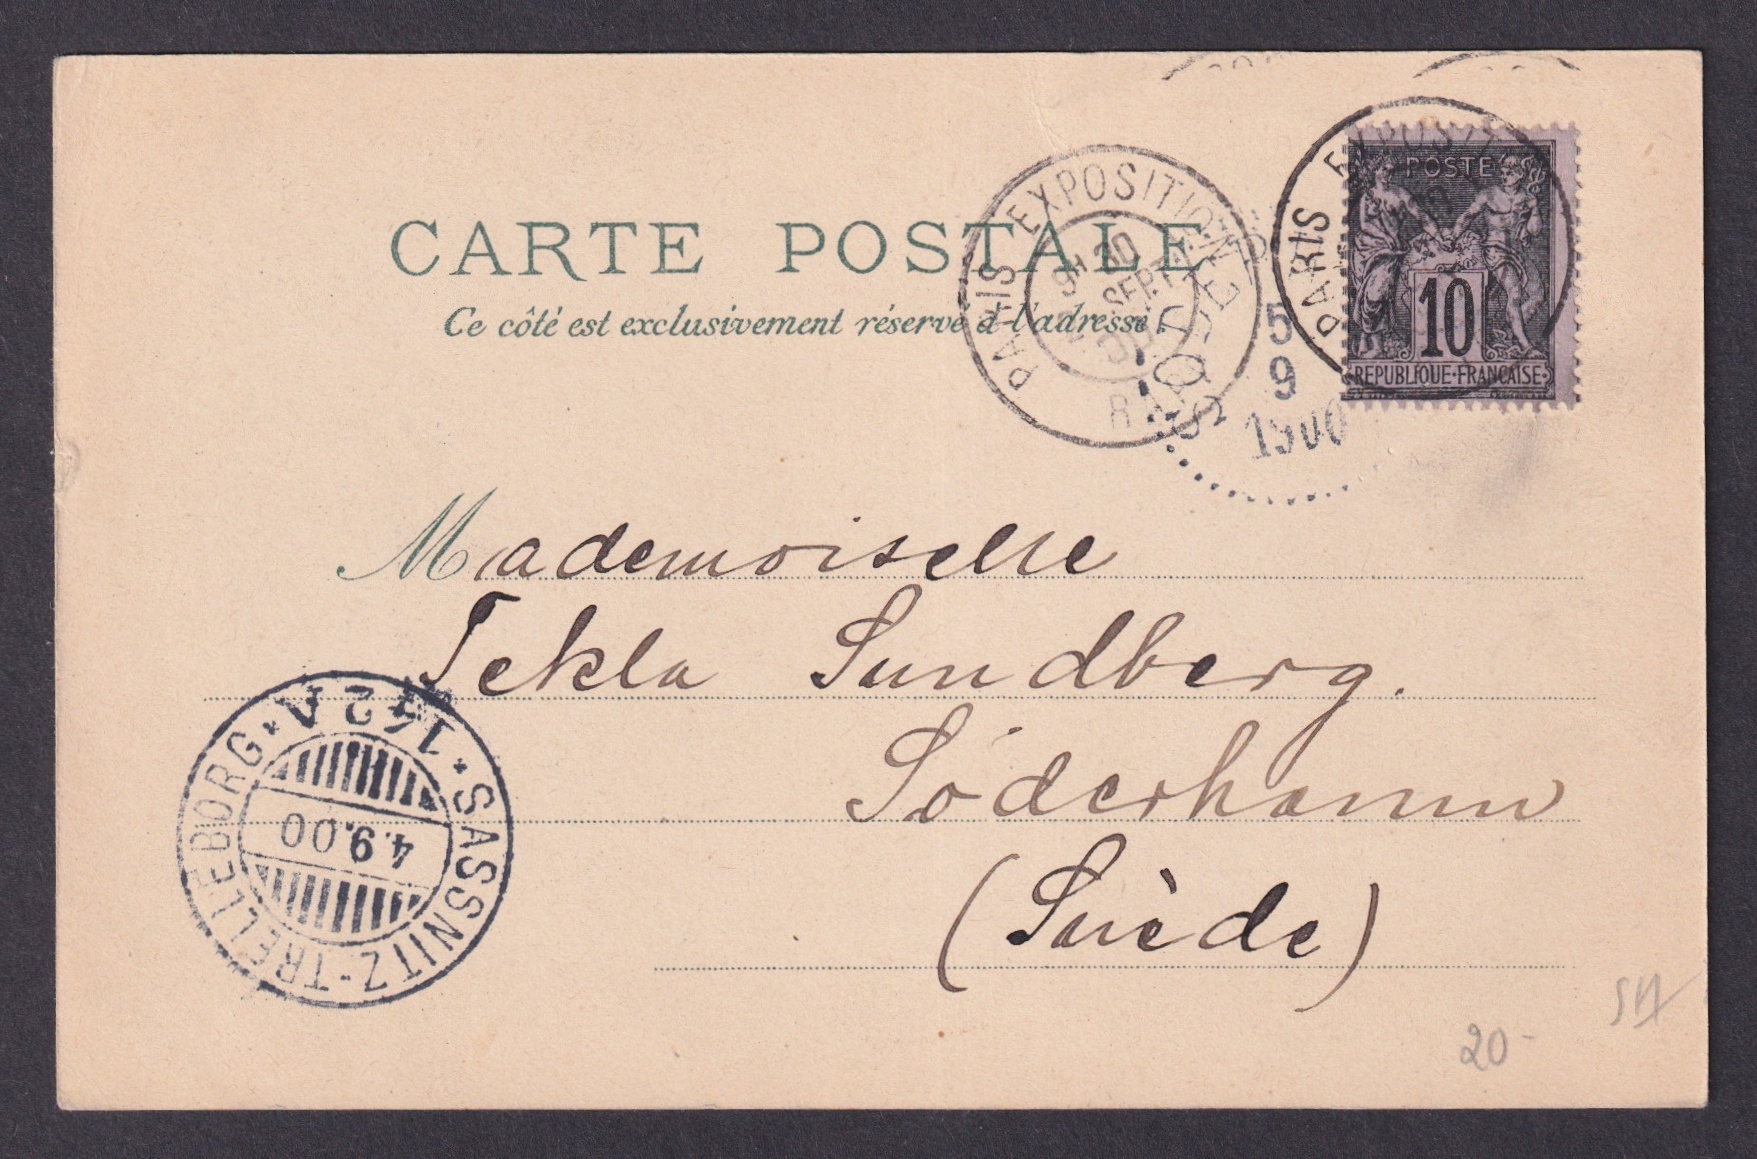 CARTE POSTALE
Ce côté est exclusivement réservé à l'adresse.
PARIS EXPOSITION
9H 30
SEPT
PARIS EXPOSIT
POSTE
10
REPUBLIQUE·FRANÇAISE
5
9
1900
Mademoiselle
Tekla Sundberg.
Söderhamn
(Suède)
SASSNITZ-TRELLEBORG
162A
4.9.00
20-